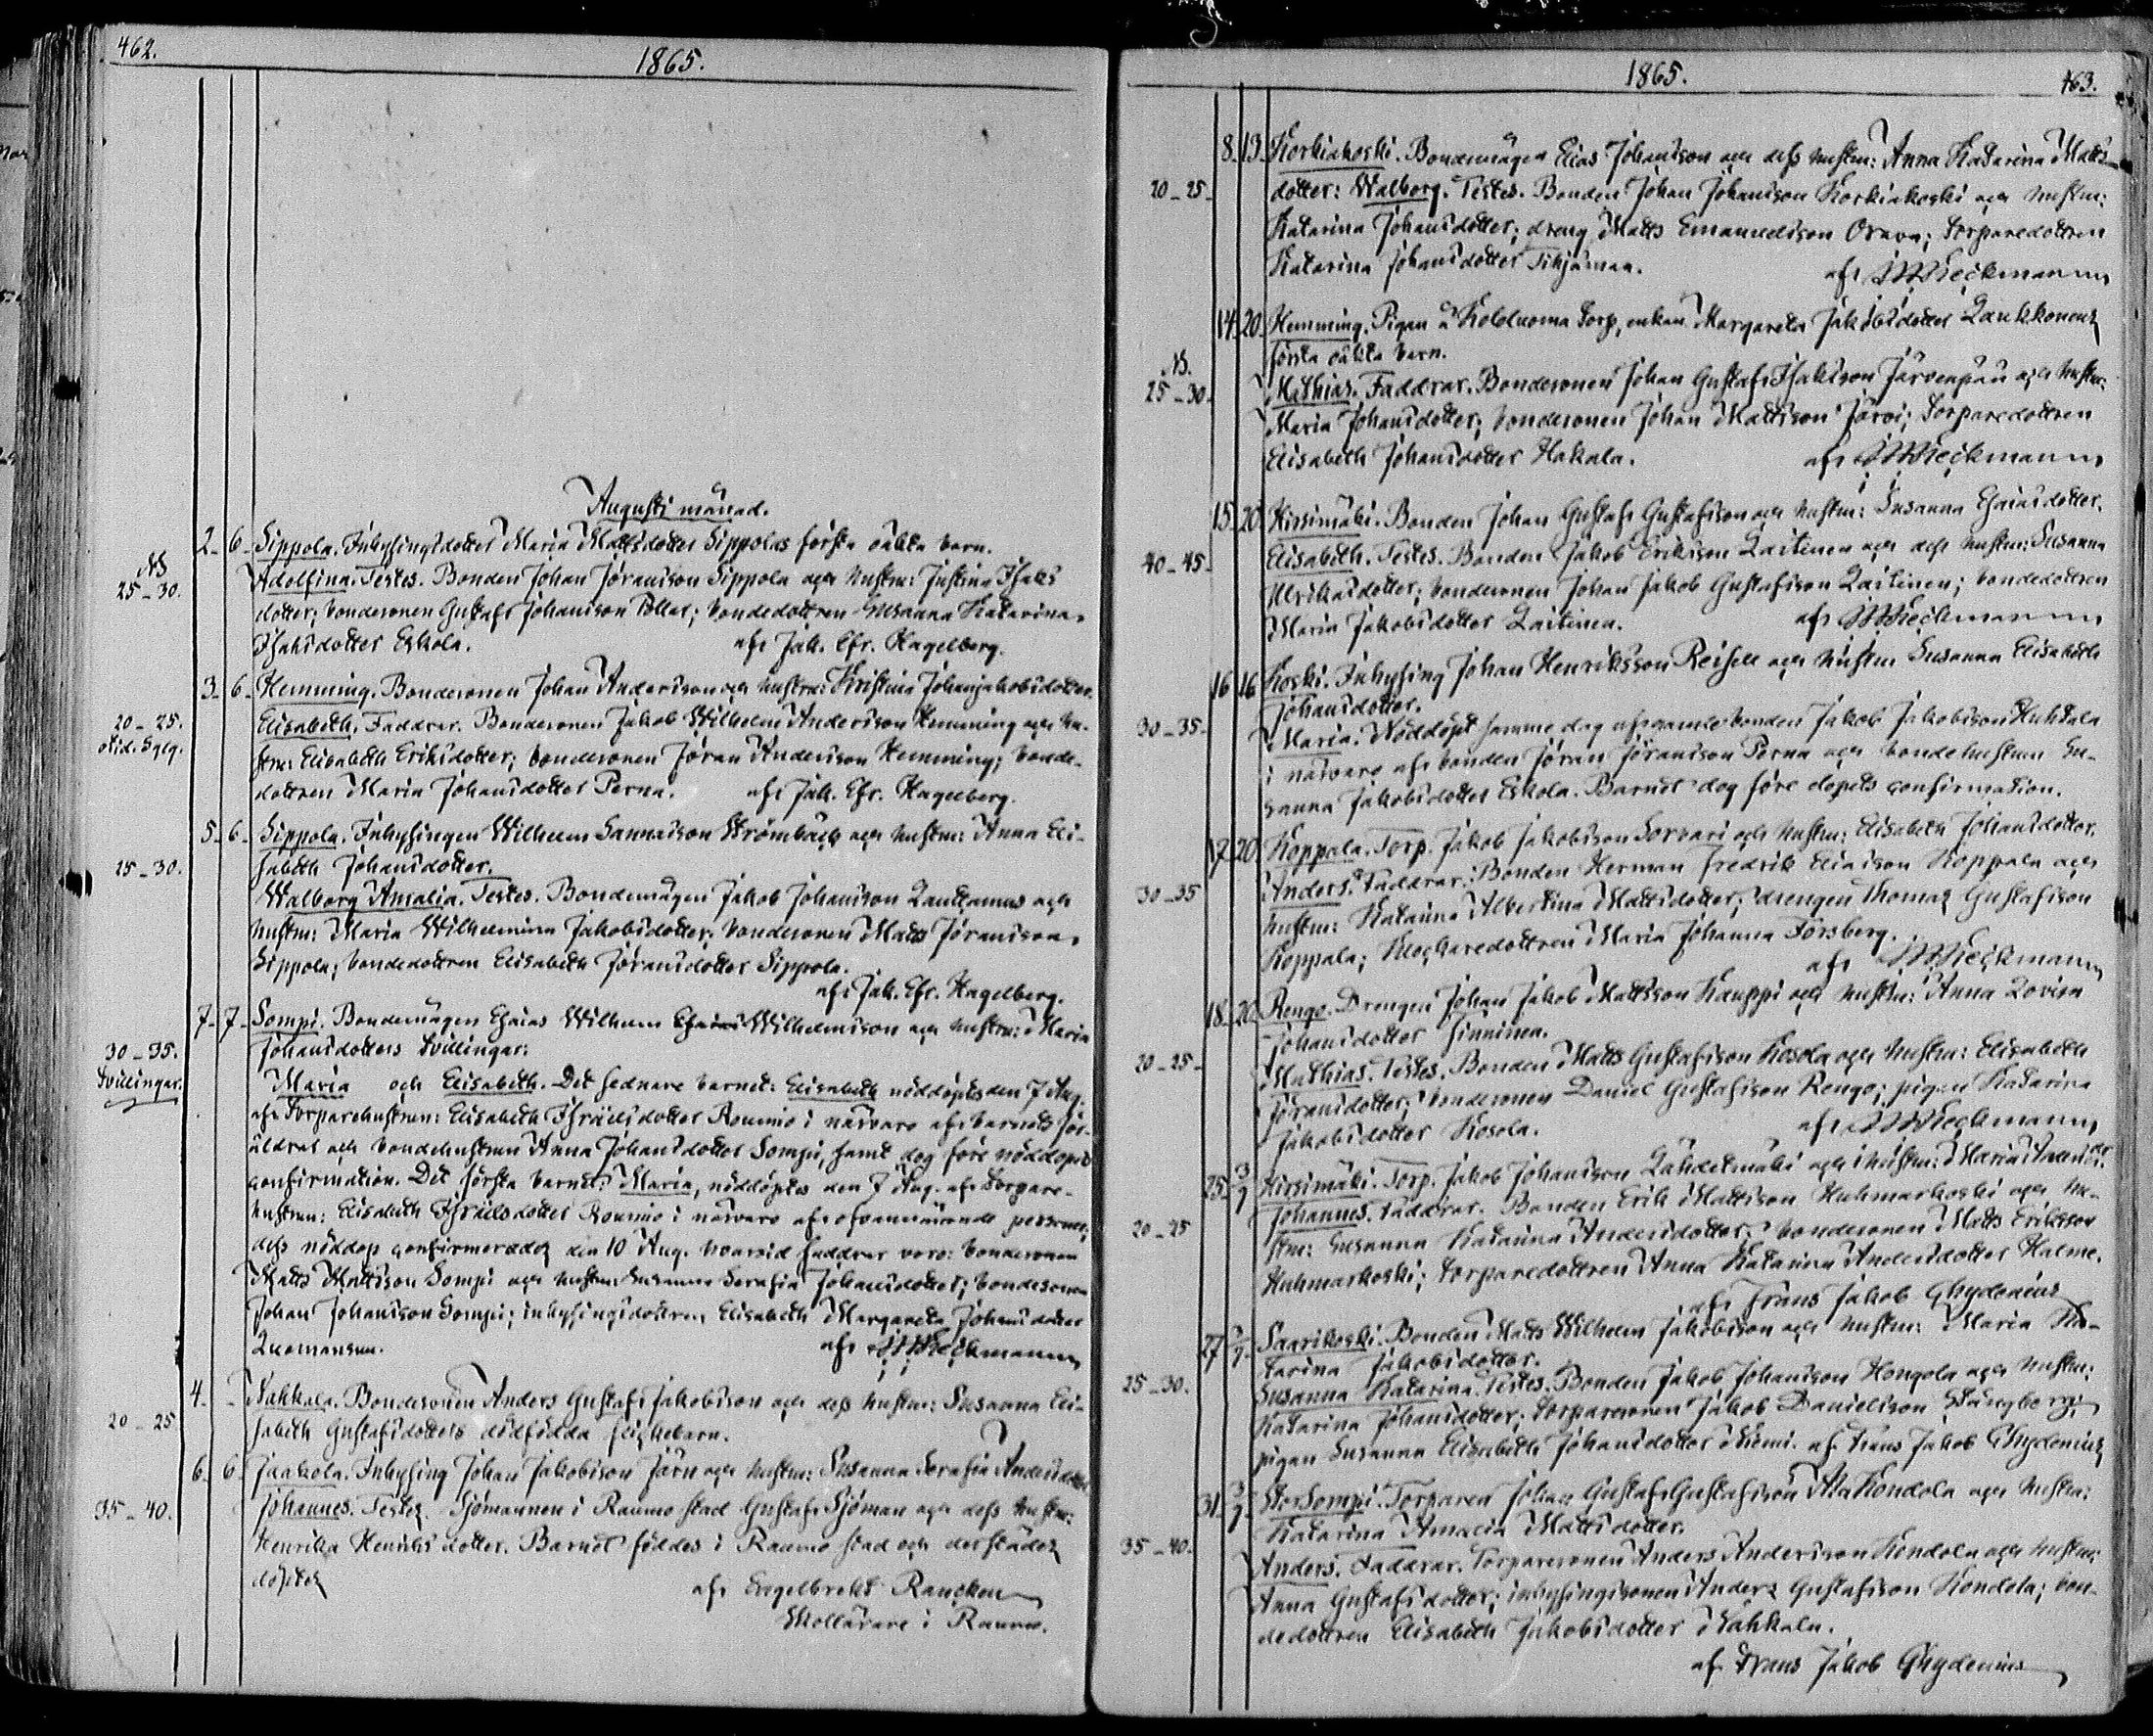 462.
1865.
Augusti månad.
2 6 Sippola. Inhysingsdotter Maria Mattsdotter Sippolas första oäkta barn.
NB
25-30. Adolfina. Testes. Bonden Johan Jöransson Sippola och hustru: Justina Isaks
dotter; bondesonen Gustaf Johansson Pollar; bondedottren Susanna Katarina
Isaksdotter Eskola. af Jak. Efr. Hagelberg.
3 6 Hemming. Bondesonen Johan Andersson och hustru: Kristina Johanjakobsdotter.
20-25. Elisabeth. Faddrar. Bondesonen Jakob Wilhelm Andersson Hemming och hu-
stru: Elisabeth Eriksdotter; bondesonen Jöran Andersson Hemming; bonde-
dottren Maria Johansdotter Perna. af Jak. Efr. Hagelberg.
5 6 Sippola. Inhysingen Wilhelm Sannaison Strömbäck och hustru: Anna Eli-
25-30. sabeth Johansdotter.
Walborg Amalia. Testes. Bondemågen Jakob Johansson Lauttamus och
hustru: Maria Wilhelmina Jakobsdotter; bondesonen Matts Jöransson
Sippola; bondedottren Elisabeth Jöransdotter Sippola.
af Jak. Efr. Hagelberg.
7 7 Sompi. Bondemågen Esaias Wilhelm Wilhelmsson och hustru: Maria
30-35. Johansdotters tvillingar:
Tvillingar. Maria och Elisabeth. Det sednare barnet: Elisabeth nöddöptes den 7 Aug.
af Torparehustrun: Elisabeth Israelsdotter Roumio i närvaro af barnets för-
äldrar och bondehustrun Anna Johansdotter Sompi, samt dog före nöddopets
confirmation. Det första barnet: Maria, nöddöptes den 7 Aug. af Torpare-
hustrun: Elisabeth Israelsdotter Roumio i närvaro af ofvannämnde personer,
dess nöddop confirmerades den 10 Aug. hvarvid faddrar voro: bondesonen
Matts Mattsson Sompi och hustru Susanna Serafia Johansdotter; bondesonen
Johan Johansson Sompi; inhysingsdottren Elisabeth Margareta Johansdotter
Luomansuu. af Wieckmann
4 Nahkala. Bondesonen Anders Gustaf Jakobsson och dess hustru: Susanna Eli-
20-25 sabeth Gustafsdotters dödfödda flickebarn.
6 6 Jaakola. Inhysing Johan Jakobsson Järn och hustru: Susanna Serafia Andersdotter
35-40. Johannes. Testes. Sjömannen i Raumo stad Gustaf Sjöman och dess hustru:
Henrika Henriksdotter. Barnet föddes i Raumo stad och derstädes
döptes af Engelbrekt Rancken
Skollärare i Raumo.
1865.
463.
8 13 Korkiakoski. Bondemågen Elias Johansson och dess hustru: Anna Katarina Matts
20-25 dotter: Walborg. Testes. Bonden Johan Johansson Korkiakoski och hustru:
Katarina Johansdotter; dreng Matts Emanuelsson Orava; Torparedottren
Katarina Johansdotter af Wieckmann
14 20 Hemming. Pigan å Kolduoma Torp, enkan Margareta Jakobsdotter Laukkonens
första oäkta barn.
NB.
25-30. Mathias. Faddrar. Bondesonen Johan Gustaf Isaksson Järvenpää och hustru:
Maria Johansdotter; bondesonen Johan Mattsson Järvi; Torparedottren
Elisabeth Johansdotter Hakala. af Wieckmann
15 20 Hirsimäki. Bonden Johan Gustaf Gustafsson och hustru: Susanna Esaiasdotter.
40-45 Elisabeth. Testes. Bonden Jakob Eriksson Laitinen och dess hustru: Susanna
Ulrikasdotter; bondesonen Johan Jakob Gustafsson Laitinen; bondedottren
Maria Jakobsdotter Laitinen. af Wieckmann
16 16 Koski. Inhysing Johan Henriksson Reisell och hustru Susanna Elisabeth
Johansdotter.
30-35 Maria. Nöddöpt samma dag af gamle bonden Jakob Jakobsson Huhtala
i närvaro af bonden Jöran Jöransson Perna och bondehustrun Su-
sanna Jakobsdotter Eskola. Barnet dog före dopets confirmation.
17 20 Koppala. Torp. Jakob Jakobsson Sorvari och hustru: Elisabeth Johansdotter.
30-35 Anders. Faddrar. Bonden Herman Fredrik Eliasson Koppala och
hustru: Katarina Albertina Mattsdotter; drengen Thomas Gustafsson
Koppala; Klockaredottren Maria Johanna Forsberg.
af Wieckmann
18 20 Rengo. Drengen Johan Jakob Mattsson Kauppi och hustru: Anna Lovisa
Johansdotter Sinninen.
20-25 Mathias. Testes. Bonden Matts Gustafsson Kosola och hustru: Elisabeth
Jöransdotter; bondesonen Daniel Gustafsson Rengo; pigan Katarina
Jakobsdotter Kosola. af Wieckmann
25 3/9 Hirsimäki. Torp. Jakob Johansson Lähdetmäki och hustru: Maria Andersdr.
20-25 Johannes. Faddrar. Bonden Erik Mattsson Huhmarkoski och hu-
stru: Susanna Katarina Andersdotter; bondesonen Matts Eriksson
Huhmarkoski; Torparedottren Anna Katarina Andersdotter Halme.
af Frans Jakob Chydenius
27 3/9 Saarikoski. Bonden Matts Wilhelm Jakobsson och hustru: Maria Ka-
tarina Jakobsdotter.
25-30. Susanna Katarina. Testes. Bonden Jakob Johansson Hongola och hustru:
Katarina Johansdotter; Torparesonen Jakob Danielsson Stångberg;
pigan Susanna Elisabeth Johansdotter Niemi. af Frans Jakob Chydenius
31 3/9 StorSompi. Torparen Johan Gustaf Gustafsson AlaKondola och hustru:
Katarina Amalia Mattsdotter.
35-40. Anders. Faddrar. Torparesonen Anders Andersson Kondola och hustru:
Anna Gustafsdotter; inhysingssonen Anders Gustafsson Kondola; bon-
dedottren Elisabeth Jakobsdotter Nahkala.
af Frans Jakob Chydenius